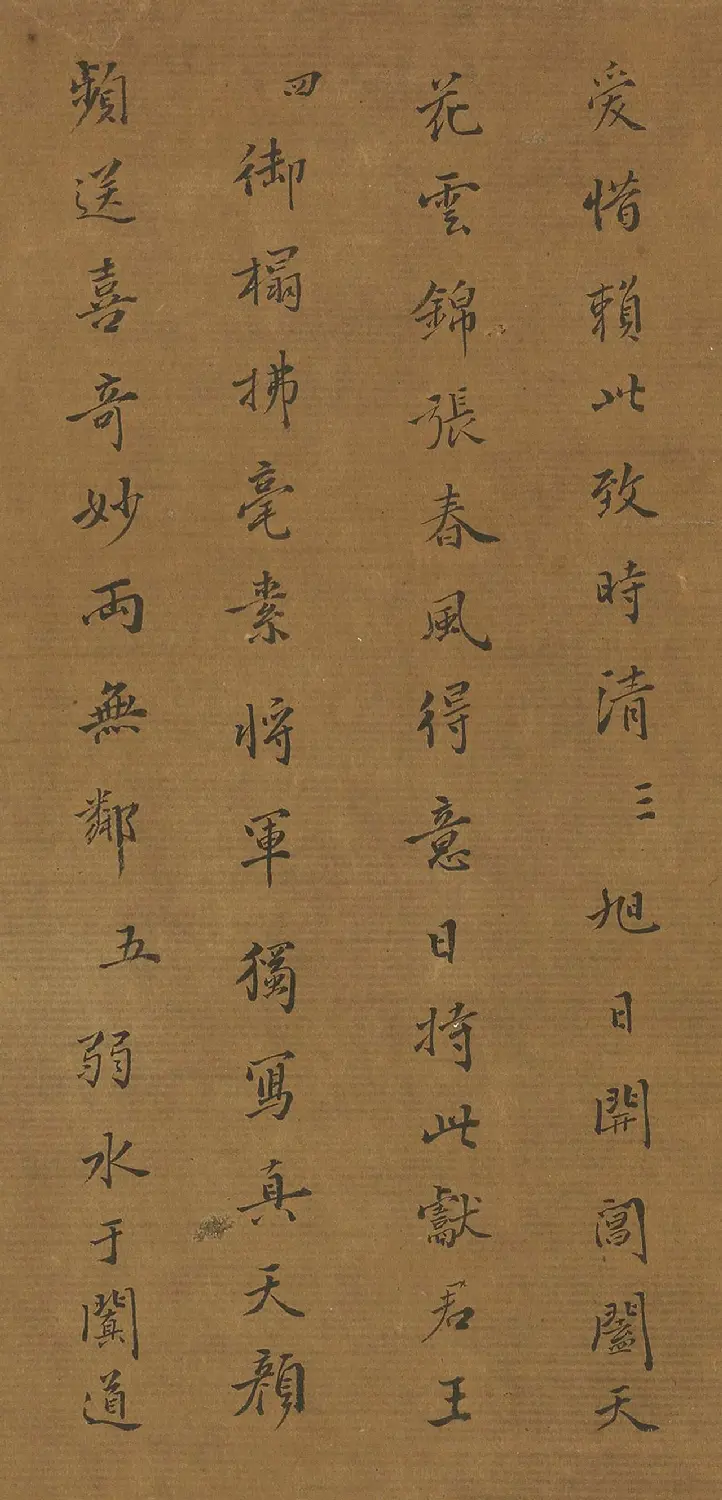 愛惜賴此致時清三旭日開閶闔天
花雲錦張春風得意日持此獻君王
四御榻拂毫素將軍獨寫真天顏
頻送喜奇妙兩無鄰五弱水于闐道